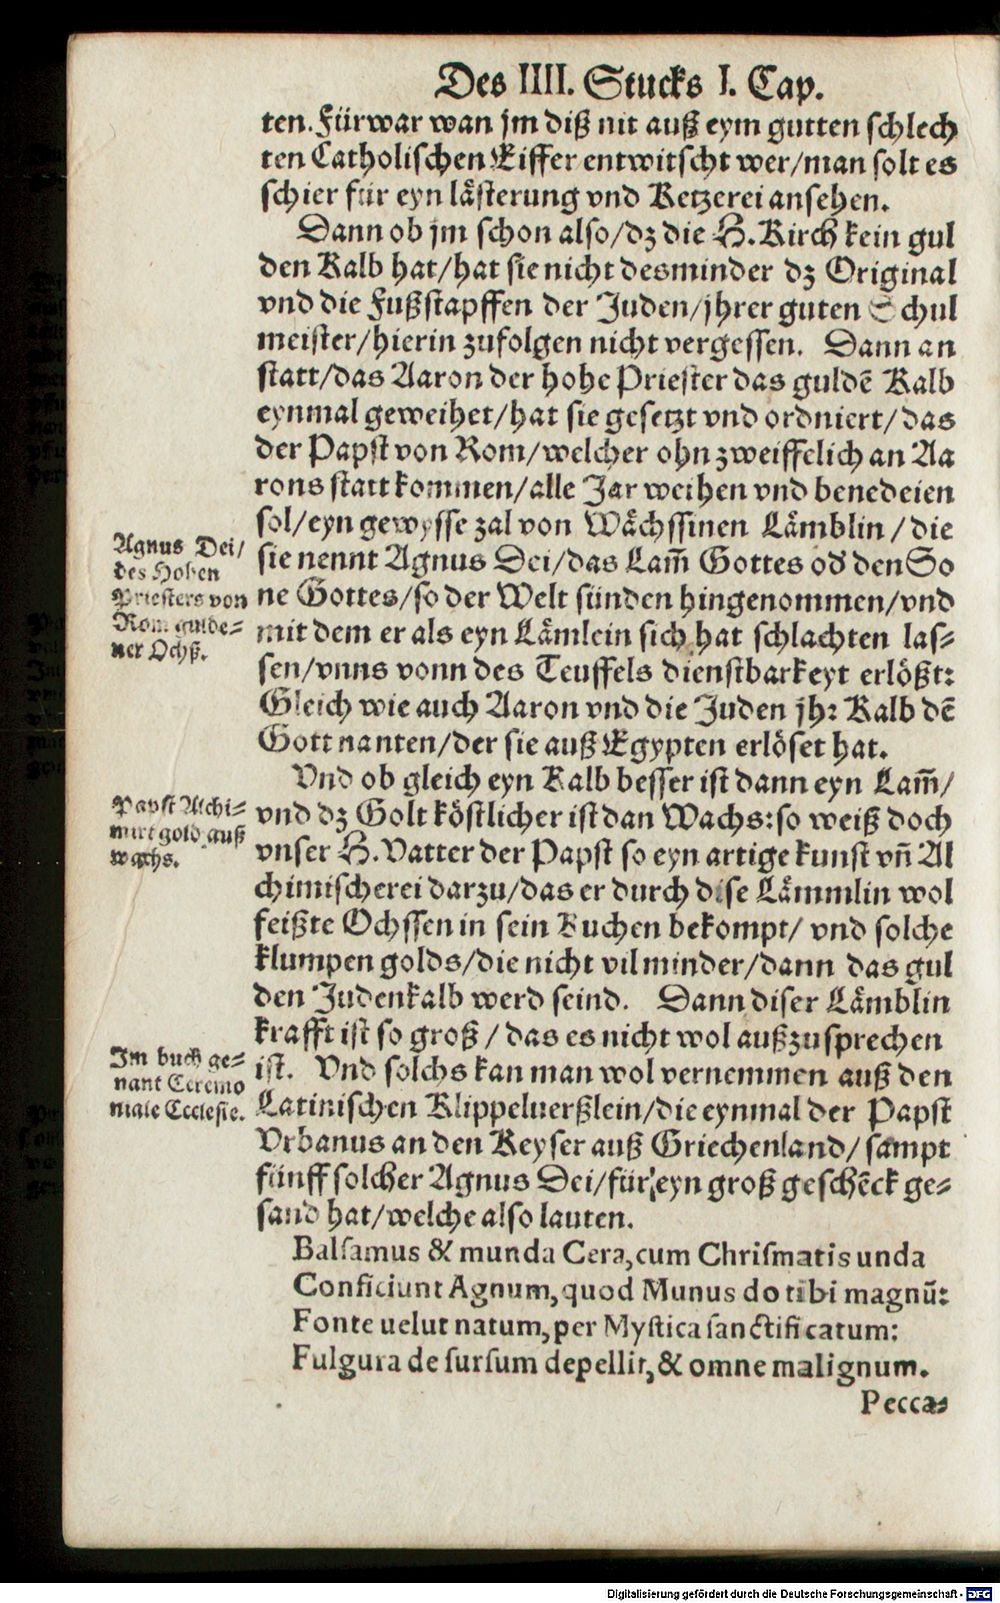 Des IIII. Stucks I. Cap.
ten. Fürwar wan jm diß nit auß eym gutten schlech
ten Catholischen Eiffer entwitscht wer/man solt es
schier für eyn lästerung vnd Ketzerei ansehen.
Dann ob jm schon also/dz die H. Kirch kein gul
den Kalb hat/hat sie nicht desminder dz Original
vnd die Fußstapffen der Juden/jhrer guten Schul
meister/hierin zufolgen nicht vergessen. Dann an
statt/das Aaron der hohe Priester das guldē Kalb
eynmal geweihet/hat sie gesetzt vnd ordniert/das
der Papst von Rom/welcher ohn zweiffelich an Aa
rons statt kommen/alle Jar weihen vnd benedeien
sol/eyn gewysse zal von Wächssinen Lämblin/die
sie nennt Agnus Dei/das Lam̄ Gottes od' den So
ne Gottes/so der Welt sünden hingenommen/vnd
mit dem er als eyn Lämlein sich hat schlachten las⸗
sen/vnns vonn des Teuffels dienstbarkeyt erlößt:
Gleich wie auch Aaron vnd die Juden jhr Kalb dē
Gott nanten/der sie auß Egypten erlöset hat.
Agnus Dei/
des Hohen
Priesters von
Rom gulde⸗
ner Ochß.
Vnd ob gleich eyn Kalb besser ist dann eyn Lam̄/
vnd dz Golt köstlicher ist dan Wachs: so weiß doch
vnser H. Vatter der Papst so eyn artige kunst vn̄ Al
chimischerei darzu/das er durch dise Lämmlin wol
feißte Ochssen in sein Kuchen bekompt/ vnd solche
klumpen golds/die nicht vil minder/dann das gul
den Judenkalb werd seind. Dann diser Lämblin
krafft ist so groß/das es nicht wol außzusprechen
ist. Vnd solchs kan man wol vernemmen auß den
Latinischen Klippeluerßlein/die eynmal der Papst
Vrbanus an den Keyser auß Griechenland/sampt
fünff solcher Agnus Dei/für eyn groß geschēck ge⸗
sand hat/welche also lauten.
Papst Alchi⸗
mirt gold auß
wachs.
Im buch ge⸗
nant Ceremo
niale Ecclesie.
Balsamus & munda Cera, cum Chrismatis unda
Conficiunt Agnum, quod Munus do tibi magnū:
Fonte uelut natum, per Mystica sanctificatum:
Fulgura de sursum depellit, & omne malignum.
Pecca⸗
Digitalisierung gefördert durch die Deutsche Forschungsgemeinschaft - DFG